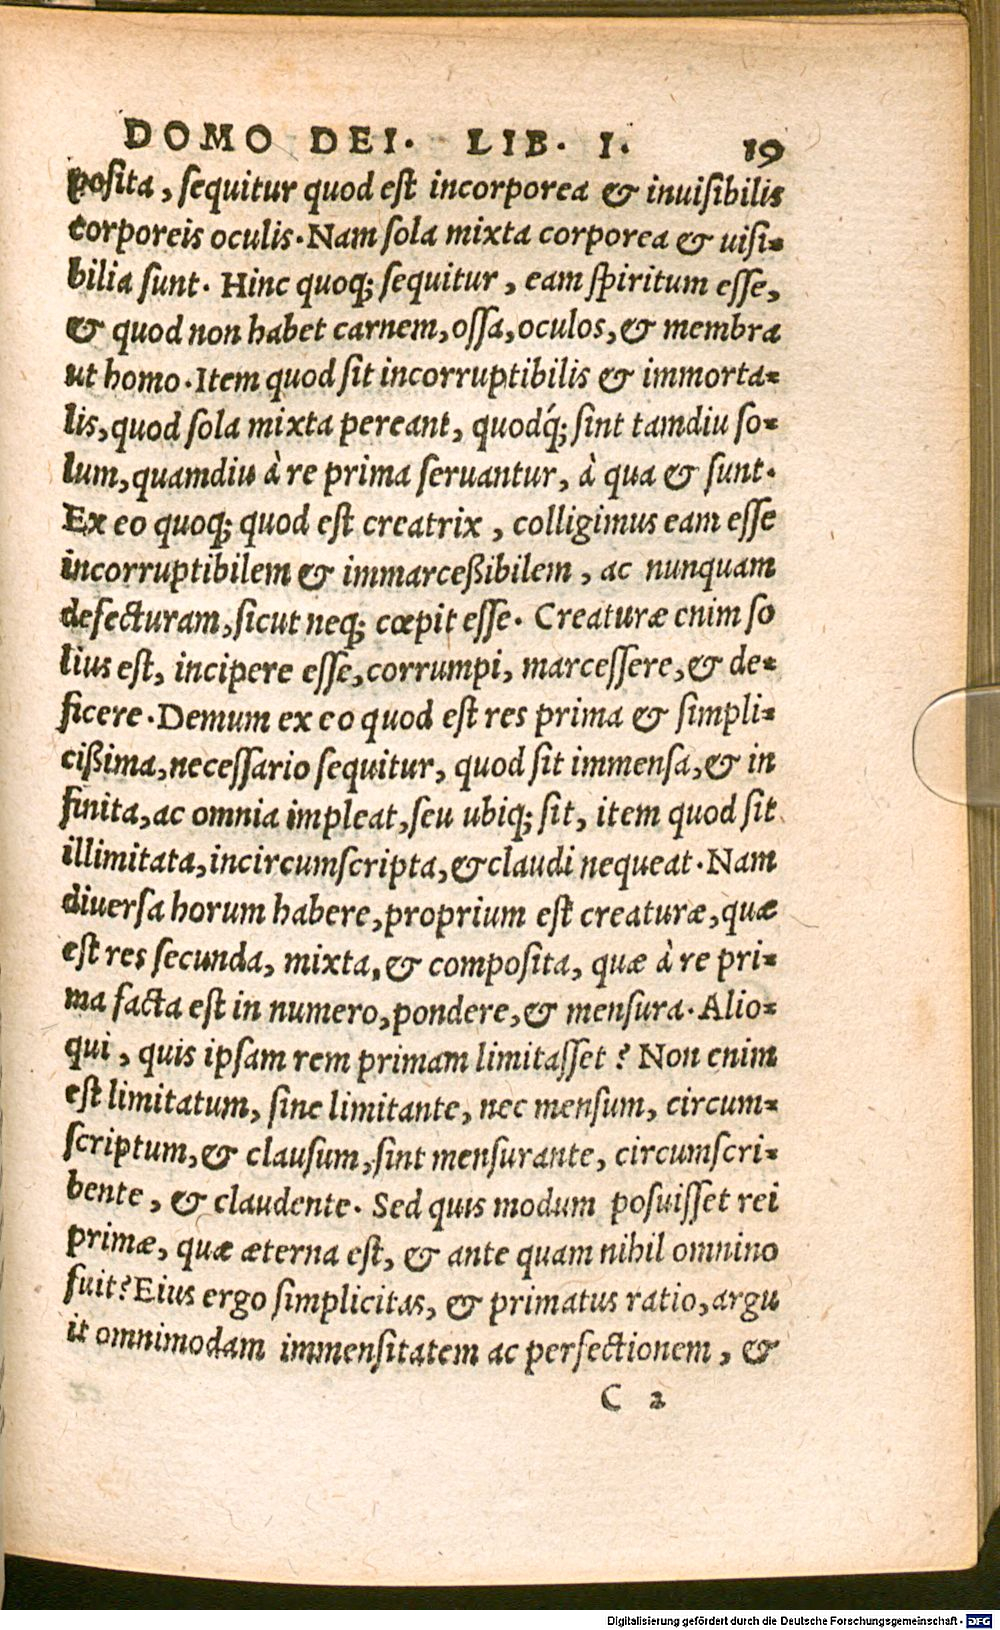 DOMO DEI. LIB. I. 19
posita, sequitur quod est incorporea & inuisibilis
corporeis oculis. Nam sola mixta corporea & uisi-
bilia sunt. Hinc quoq; sequitur, eam spiritum esse,
& quod non habet carnem, ossa, oculos, & membra
ut homo. Item quod sit incorruptibilis & immorta-
lis, quod sola mixta pereant, quodq́; sint tamdiu so-
lum, quamdiu à re prima seruantur, à qua & sunt.
Ex eo quoq; quod est creatrix, colligimus eam esse
incorruptibilem & immarceßibilem, ac nunquam
defecturam, sicut neq; cœpit esse. Creaturæ enim so
lius est, incipere esse, corrumpi, marcessere, & de-
ficere. Demum ex eo quod est res prima & simpli-
cißima, necessario sequitur, quod sit immensa, & in
finita, ac omnia impleat, seu ubiq; sit, item quod sit
illimitata, incircumscripta, & claudi nequeat. Nam
diuersa horum habere, proprium est creaturæ, quæ
est res secunda, mixta, & composita, quæ à re pri-
ma facta est in numero, pondere, & mensura. Alio-
qui, quis ipsam rem primam limitasset? Non enim
est limitatum, sine limitante, nec mensum, circum-
scriptum, & clausum, sint mensurante, circumscri-
bente, & claudente. Sed quis modum posuisset rei
primæ, quæ æterna est, & ante quam nihil omnino
fuit? Eius ergo simplicitas, & primatus ratio, argu
it omnimodam immensitatem ac perfectionem, &
C 2
Digitalisierung gefördert durch die Deutsche Forschungsgemeinschaft - DFG